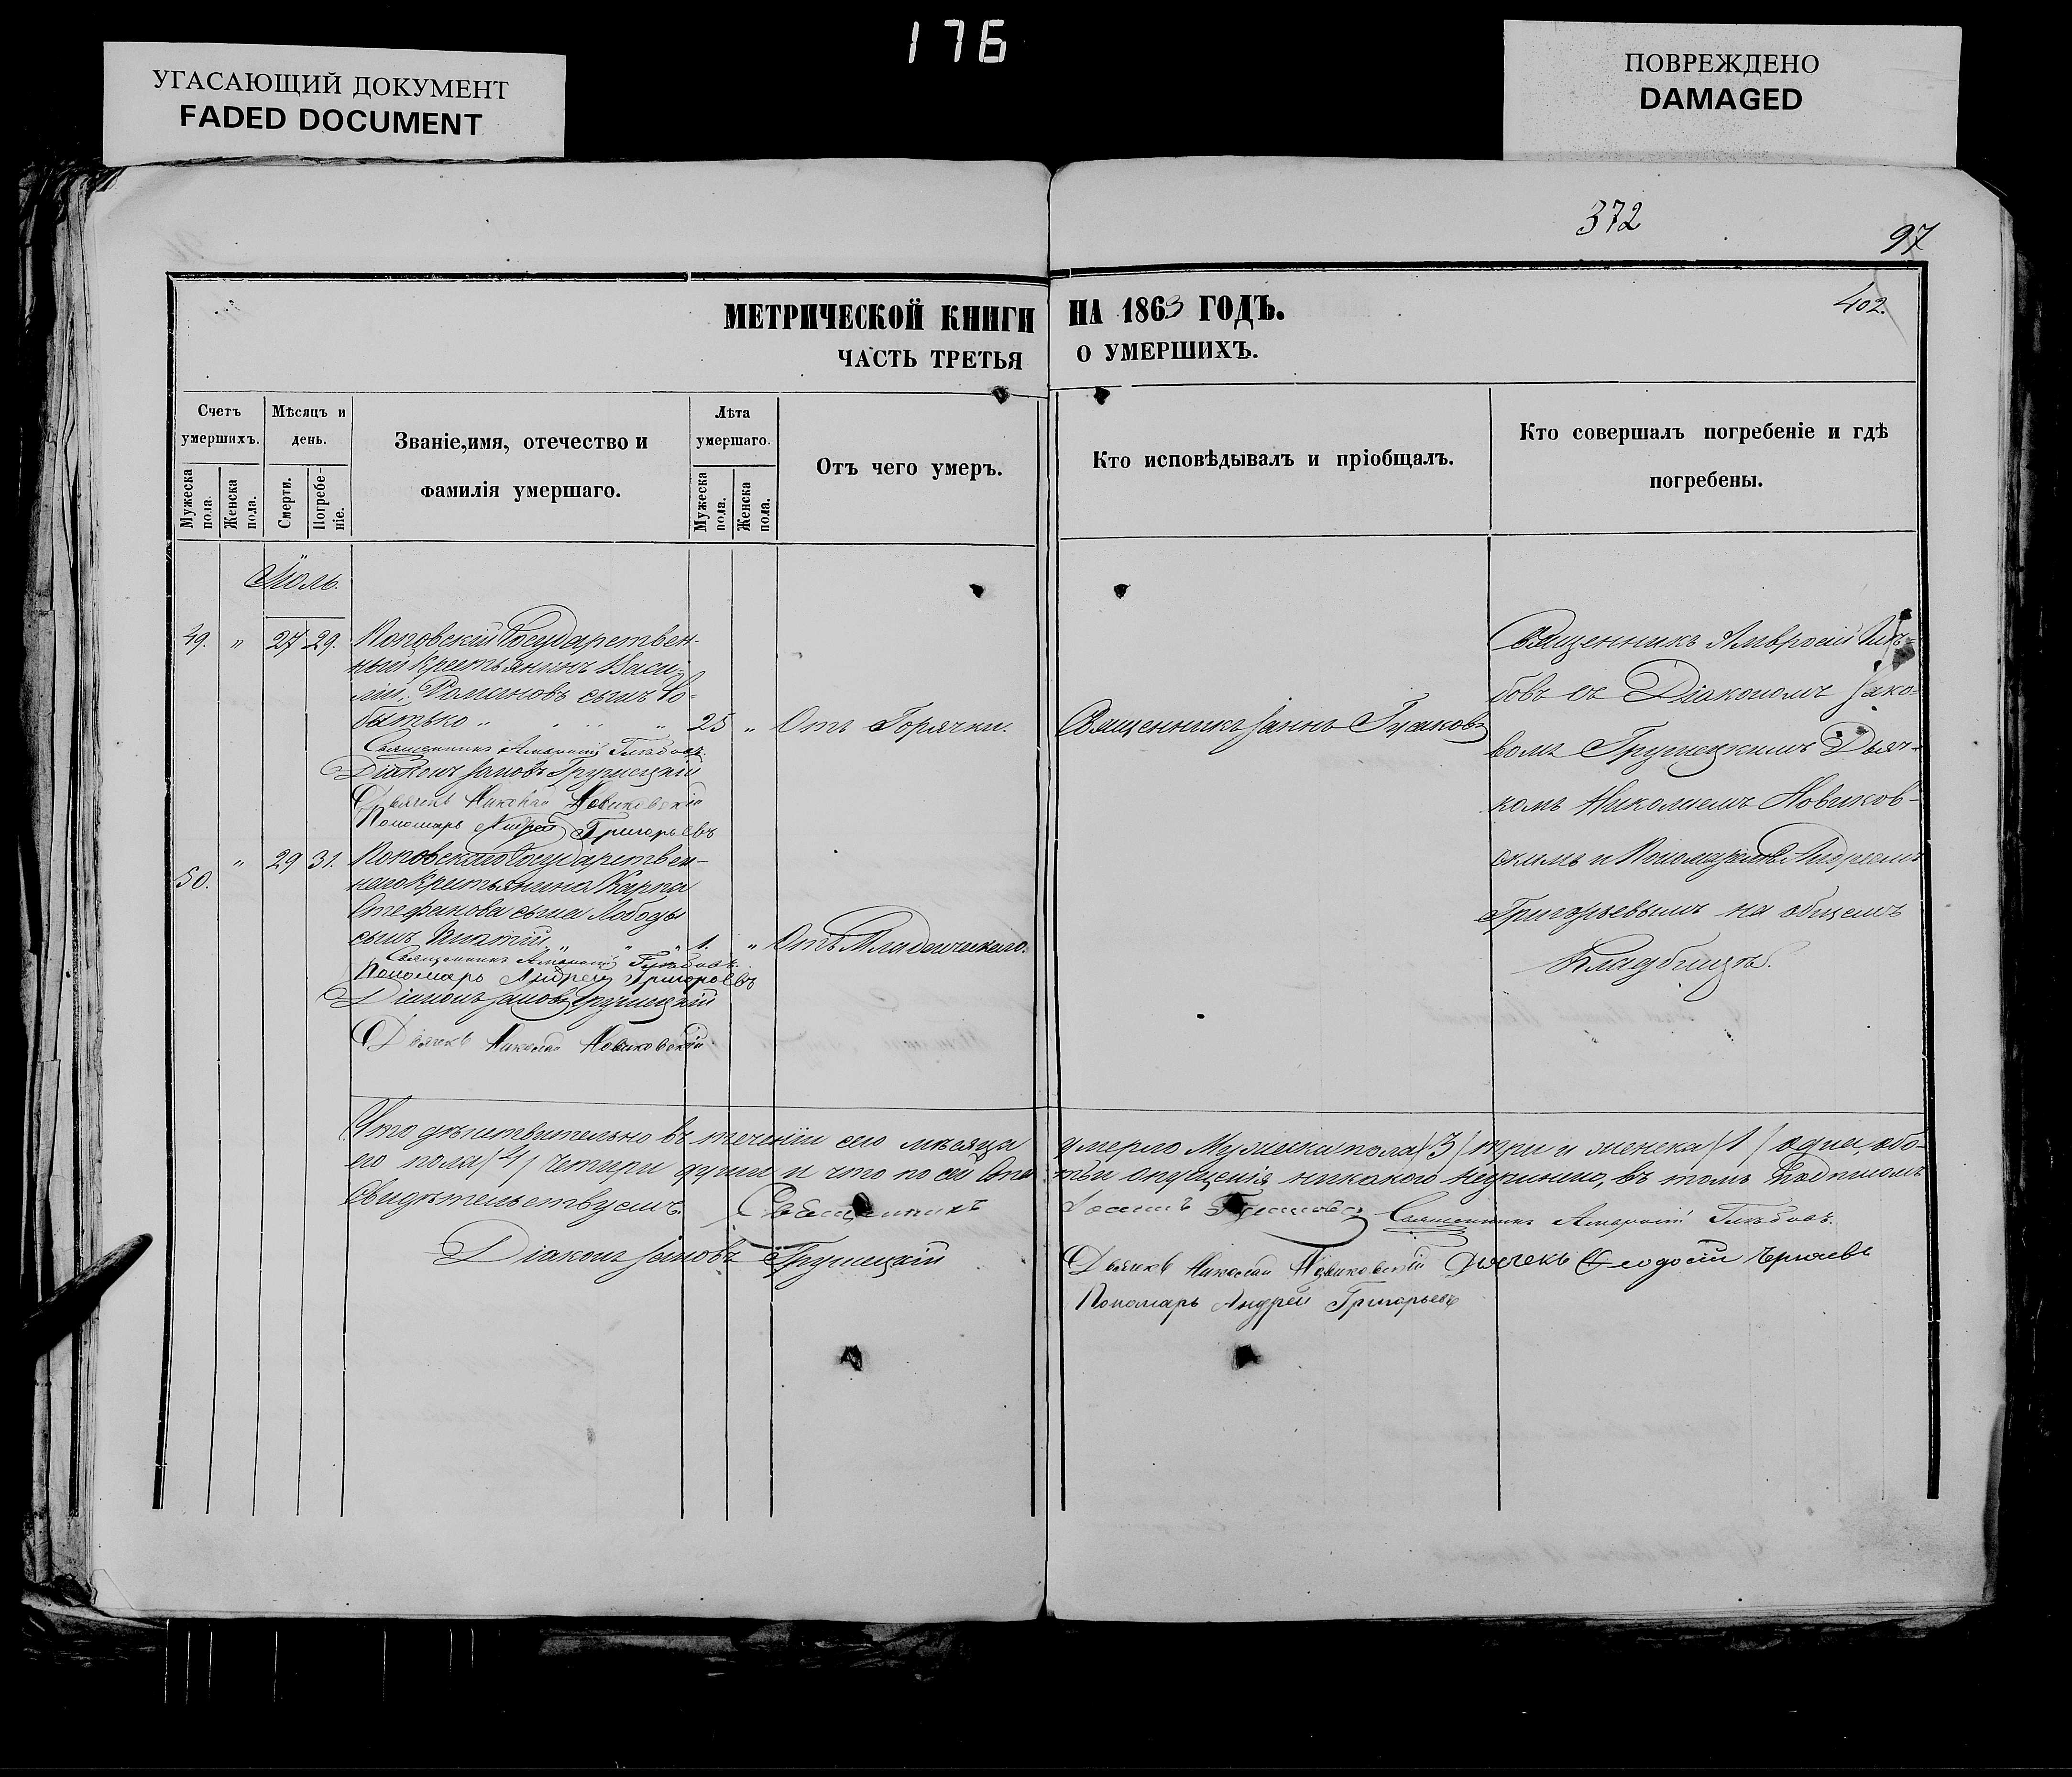 176
УГАСАЮЩИЙ ДОКУМЕНТ
FADED DOCUMENT
ПОВРЕЖДЕНО
DAMAGED
372
97
402.
МЕТРИЧЕСКОЙ КНИГИ НА 1863 ГОДЪ.
ЧАСТЬ ТРЕТЬЯ О УМЕРШИХЪ.
Счетъ умершихъ.
Мужеска пола.
Женска пола.
Мѣсяцъ и день.
Смерти.
Погребеніе.
Званіе, имя, отечество и
фамилія умершаго.
Лѣта умершаго.
Мужеска пола.
Женска пола.
Отъ чего умеръ.
Кто исповѣдывалъ и пріобщалъ.
Кто совершалъ погребеніе и гдѣ
погребены.
Іюль.
49. " 27 29. Поповскій Государствен-
ный крестьянинъ Васи-
лій Романовъ сынъ
25 " Отъ Горячки.
Священникъ Іоаннъ Гусаковъ
Священникъ Амвросій Глѣбовъ.
Діаконъ Іаковъ Грушецкій
Дьячекъ Николай Новиковскій
Пономарь Андрей Григорьевъ
50. " 29 31. Поповскаго Государствен-
наго крестьянина Карпа
Стефанова сына Лободы
сынъ 1. " Отъ Младенческаго.
Священникъ Амвросій Глѣбовъ.
Пономарь Андрей Григорьевъ
Діаконъ Іаковъ Грушецкій
Дьячекъ Николай Новиковскій
Священникъ Амвросій Глѣ-
бовъ съ Діакономъ Іако-
вомъ Грушецкимъ Дьяч-
комъ Николаемъ Новиков-
скимъ и Пономаремъ Андреемъ
Григорьевымъ на общемъ
Кладбищѣ.
Что дѣйствительно въ теченіи сего мѣсяца умерло Мужеска пола (3) три и женска (1) одна, обо-
его пола (4) четыри души и что по сей опущенія никакого неучинено, въ томъ подписомъ
свидѣтельствуемъ. Священникъ Священникъ Амвросій Глѣбовъ.
Діаконъ Іаковъ Грушецкій
Дьячекъ Николай Новиковскій Дьячекъ Феодосій
Пономарь Андрей Григорьевъ